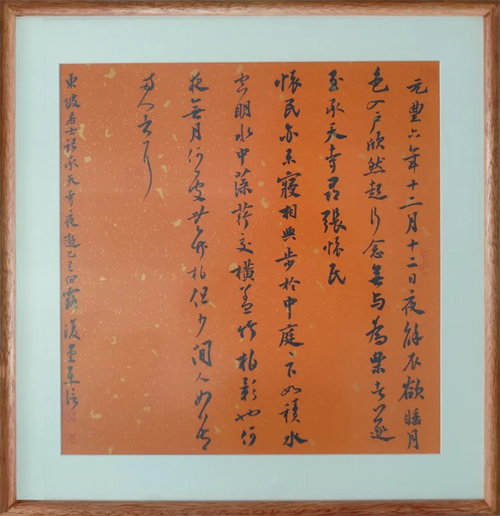 元豐六年十二月十二日夜解衣欲睡月
色入户欣然起行念無与為樂者遂
至承天寺尋張懷民
懷民亦未寢相與步於中庭〻下如積水
空明水中藻荇交橫蓋竹柏影也何
夜無月何處無竹柏但少閒人如吾
兩人者耳
東坡居士記承天寺夜遊己亥白露